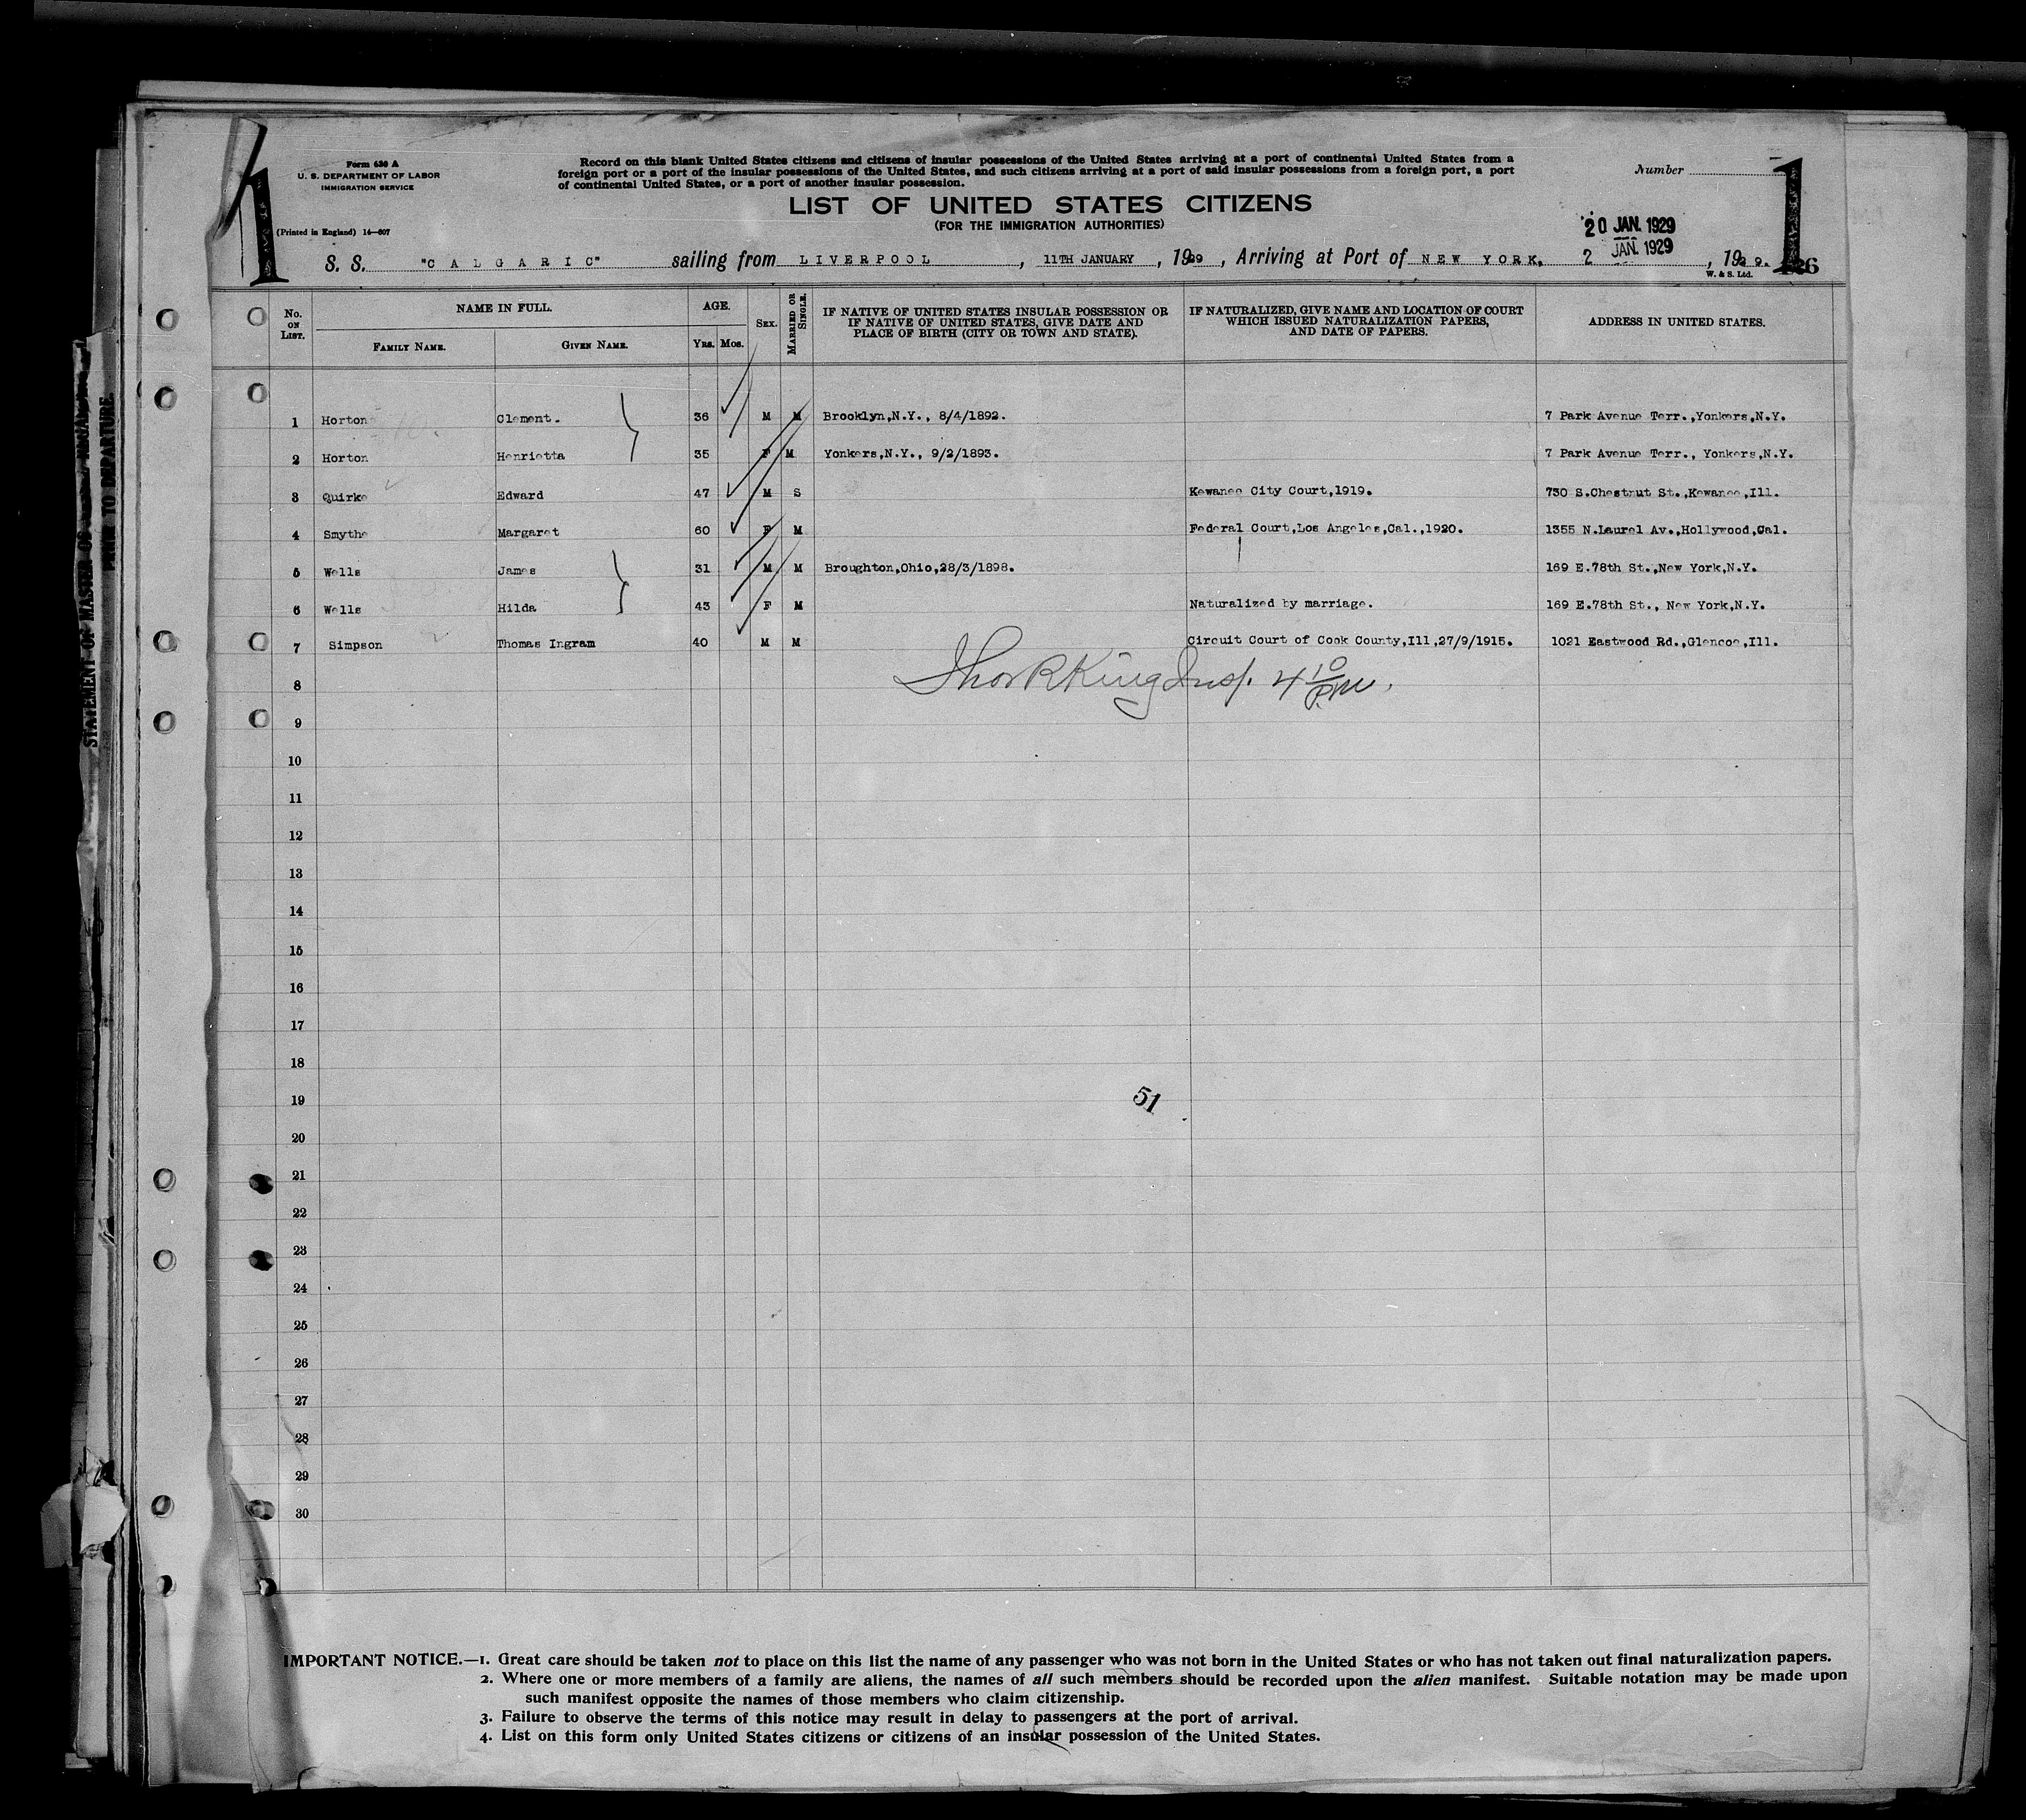 1
Form 630 A
U. S. DEPARTMENT OF LABOR
IMMIGRATION SERVICE
(Printed in England) 14—607
Record on this blank United States citizens and citizens of insular possessions of the United States arriving at a port of continental United States from a
foreign port or a port of the insular possessions of the United States, and such citizens arriving at a port of said insular possessions from a foreign port, a port
of continental United States, or a port of another insular possession.
Number
1
LIST OF UNITED STATES CITIZENS
(FOR THE IMMIGRATION AUTHORITIES)
20 JAN. 1929
S. S. "CALGARIC" sailing from LIVERPOOL, 11TH JANUARY, 1929, Arriving at Port of NEW YORK. 2 JAN. 1929, 1929.
W. & S. Ltd.
No. ON LIST. NAME IN FULL. AGE. SEX. MARRIED OR SINGLE. IF NATIVE OF UNITED STATES INSULAR POSSESSION OR IF NATIVE OF UNITED STATES, GIVE DATE AND PLACE OF BIRTH (CITY OR TOWN AND STATE). IF NATURALIZED, GIVE NAME AND LOCATION OF COURT WHICH ISSUED NATURALIZATION PAPERS, AND DATE OF PAPERS. ADDRESS IN UNITED STATES.
FAMILY NAME. GIVEN NAME. YRS. MOS.
1 Horton Clement. 36 M M Brooklyn,N.Y., 8/4/1892. 7 Park Avenue Terr.,Yonkers,N.Y.
2 Horton Henrietta 35 F M Yonkers,N.Y., 9/2/1893. 7 Park Avenue Terr., Yonkers,N.Y.
3 Quirke Edward 47 M S Kewanee City Court,1919. 730 S.Chestnut St.,Kewanee,Ill.
4 Smythe Margaret 60 F M Federal Court,Los Angeles,Cal.,1920. 1355 N.Laurel Av.,Hollywood,Cal.
5 Wells James 31 M M Broughton,Ohio,28/3/1898. 169 E.78th St.,New York,N.Y.
6 Wells Hilda 43 F M Naturalized by marriage. 169 E.78th St., New York,N.Y.
7 Simpson Thomas Ingram 40 M M Circuit Court of Cook County,Ill,27/9/1915. 1021 Eastwood Rd.,Glencoe,Ill.
8 Thos R King Insp. 4 10 P.M.
9
10
11
12
13
14
15
16
17
18
19 51
20
21
22
23
24
25
26
27
28
29
30
IMPORTANT NOTICE.—1. Great care should be taken not to place on this list the name of any passenger who was not born in the United States or who has not taken out final naturalization papers.
2. Where one or more members of a family are aliens, the names of all such members should be recorded upon the alien manifest. Suitable notation may be made upon
such manifest opposite the names of those members who claim citizenship.
3. Failure to observe the terms of this notice may result in delay to passengers at the port of arrival.
4. List on this form only United States citizens or citizens of an insular possession of the United States.